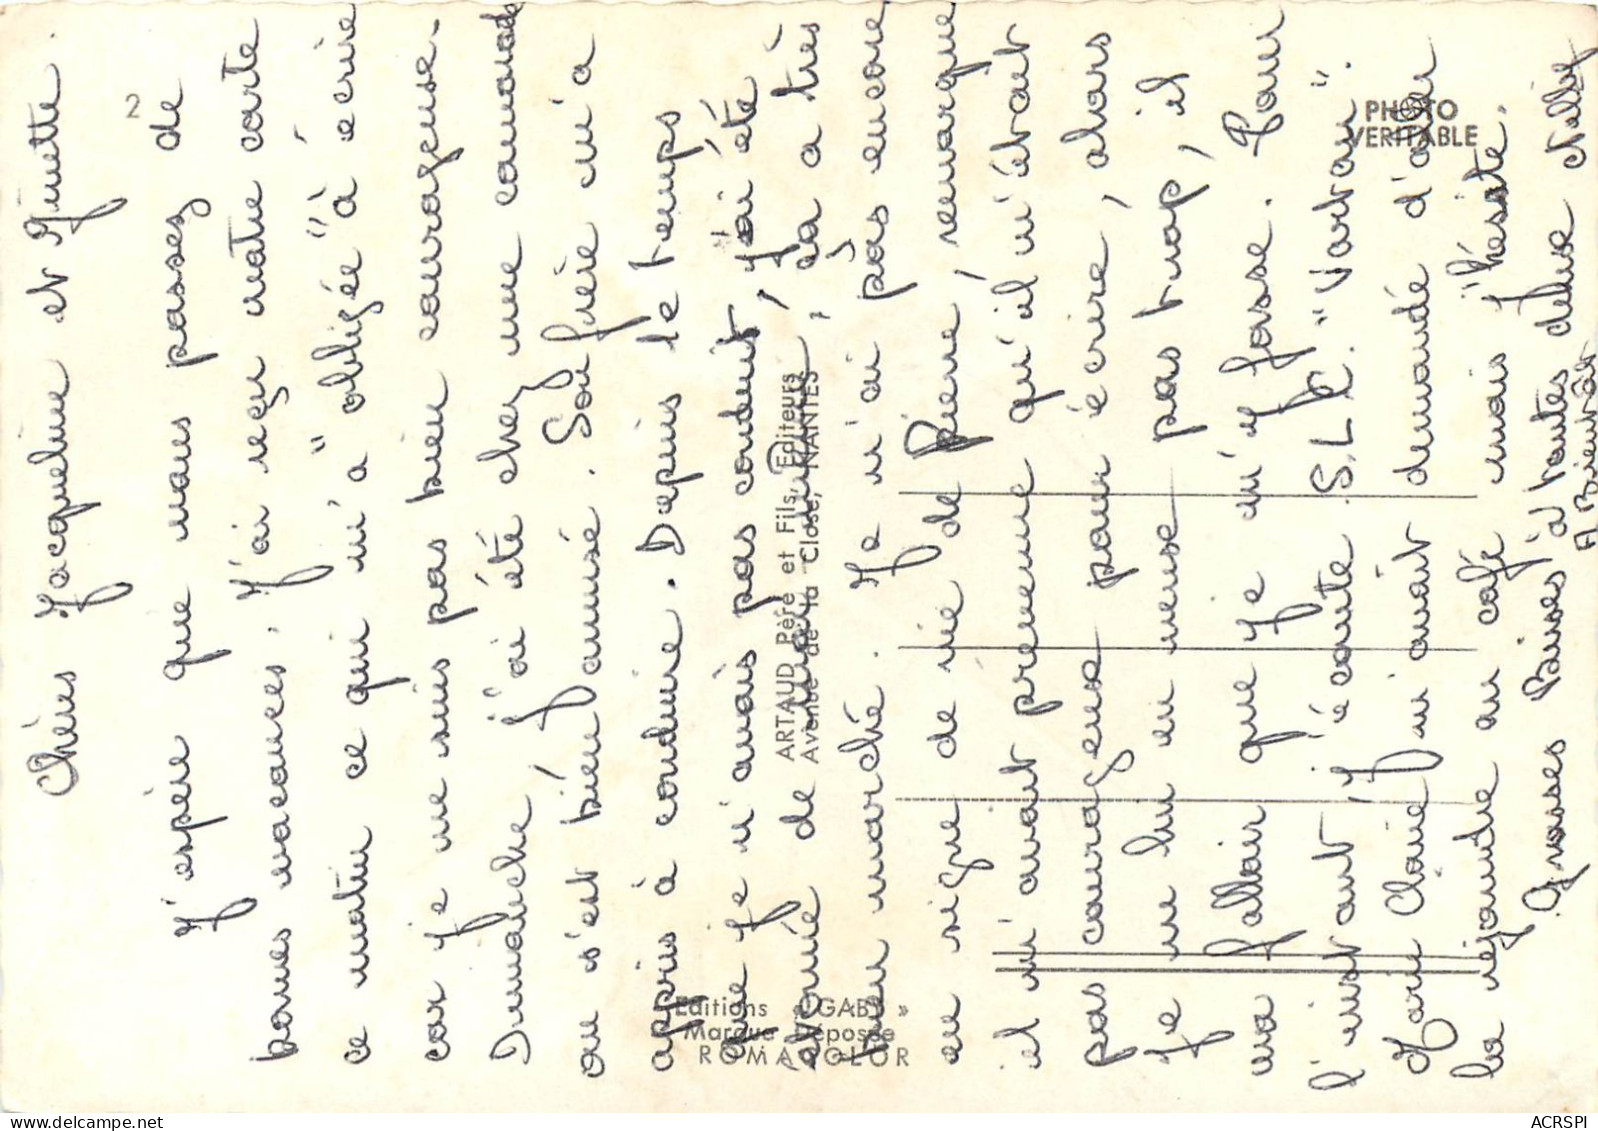 Chères Jacqueline et Ginette.
J'espère que vous passez de
bonnes vacances. J'ai reçu votre carte
ce matin ce qui m'a "obligée" à écrire
car je ne suis pas bien courageuse.
Dimanche, j'ai été chez une camarade
on s'est bien amusé. Son frère m'a
appris à conduire. Depuis le temps
que je n'avais pas conduit, j'ai été
de, ça a très
bien marché. Je n'ai pas encore
eu signe de vie de Pierre, remarque
il m'avait prévenue qu'il n'était
pas courageux pour écrire, alors
je ne lui en veux pas trop, il
va falloir que je m'y fasse. Pour
l'instant, j'écoute S.L.C. "Vartan".
Marie Claire m'avait demandé d'aller
la rejoindre au café mais j'hésite.
Grosses Bises à toutes deux
A Bientôt
2
PHOTO
VERITABLE
ARTAUD Père et Fils, Editeurs
Avenue de la Close, NANTES
Editions « GABY »
Marque Déposée
ROMACOLOR
ACRSPI